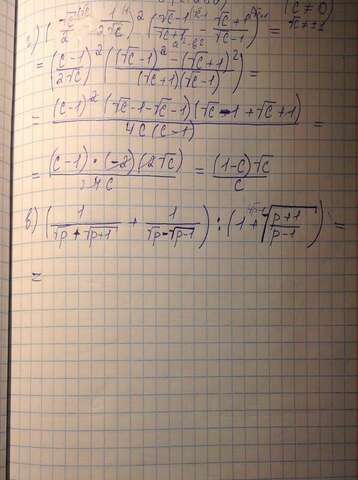 г) (√c/2 - 1/2√c)² (√c-1/√c+1 - √c+1/√c-1) = (c≠0) √c≠±1
= (c-1/2√c)² ((√c-1)² - (√c+1)²/(√c+1)(√c-1)) = a²-b²
= (c-1)² (√c-1-√c-1)(√c-1+√c+1)/4c(c-1) =
= (c-1)·(-2)(2√c)/4c = (1-c)√c/c
в) (1/√p+√p+1 + 1/√p-√p-1) : (1+√p+1/p-1) =
=